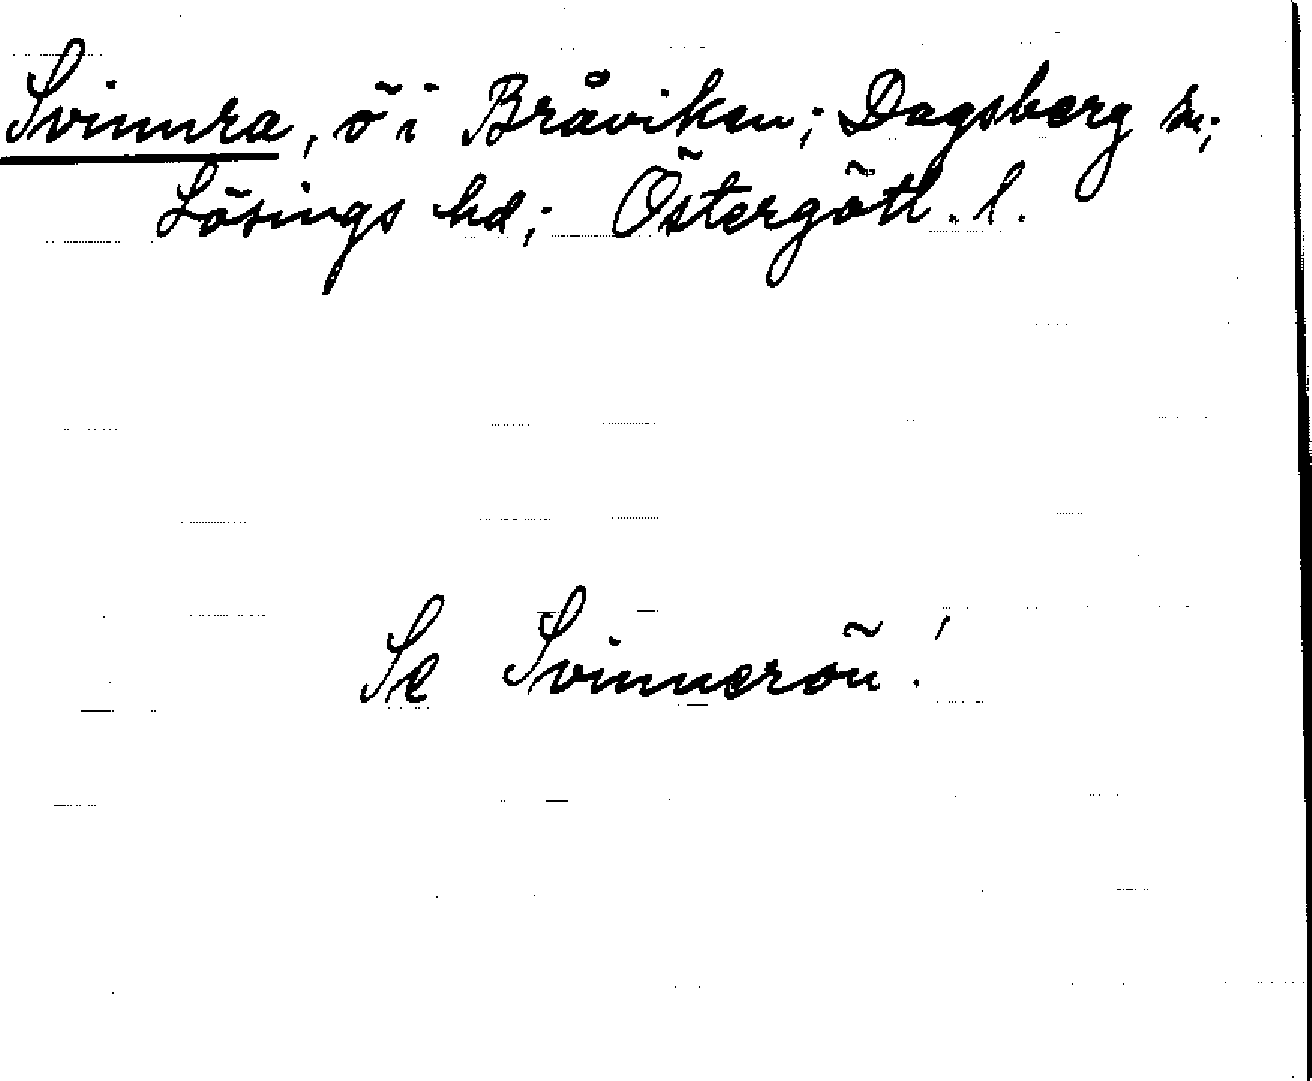 Svinnra, ö i Bråviken; Dagsberg sn;
Lösings hd; Östergötl. l.
Se Svinnerön!